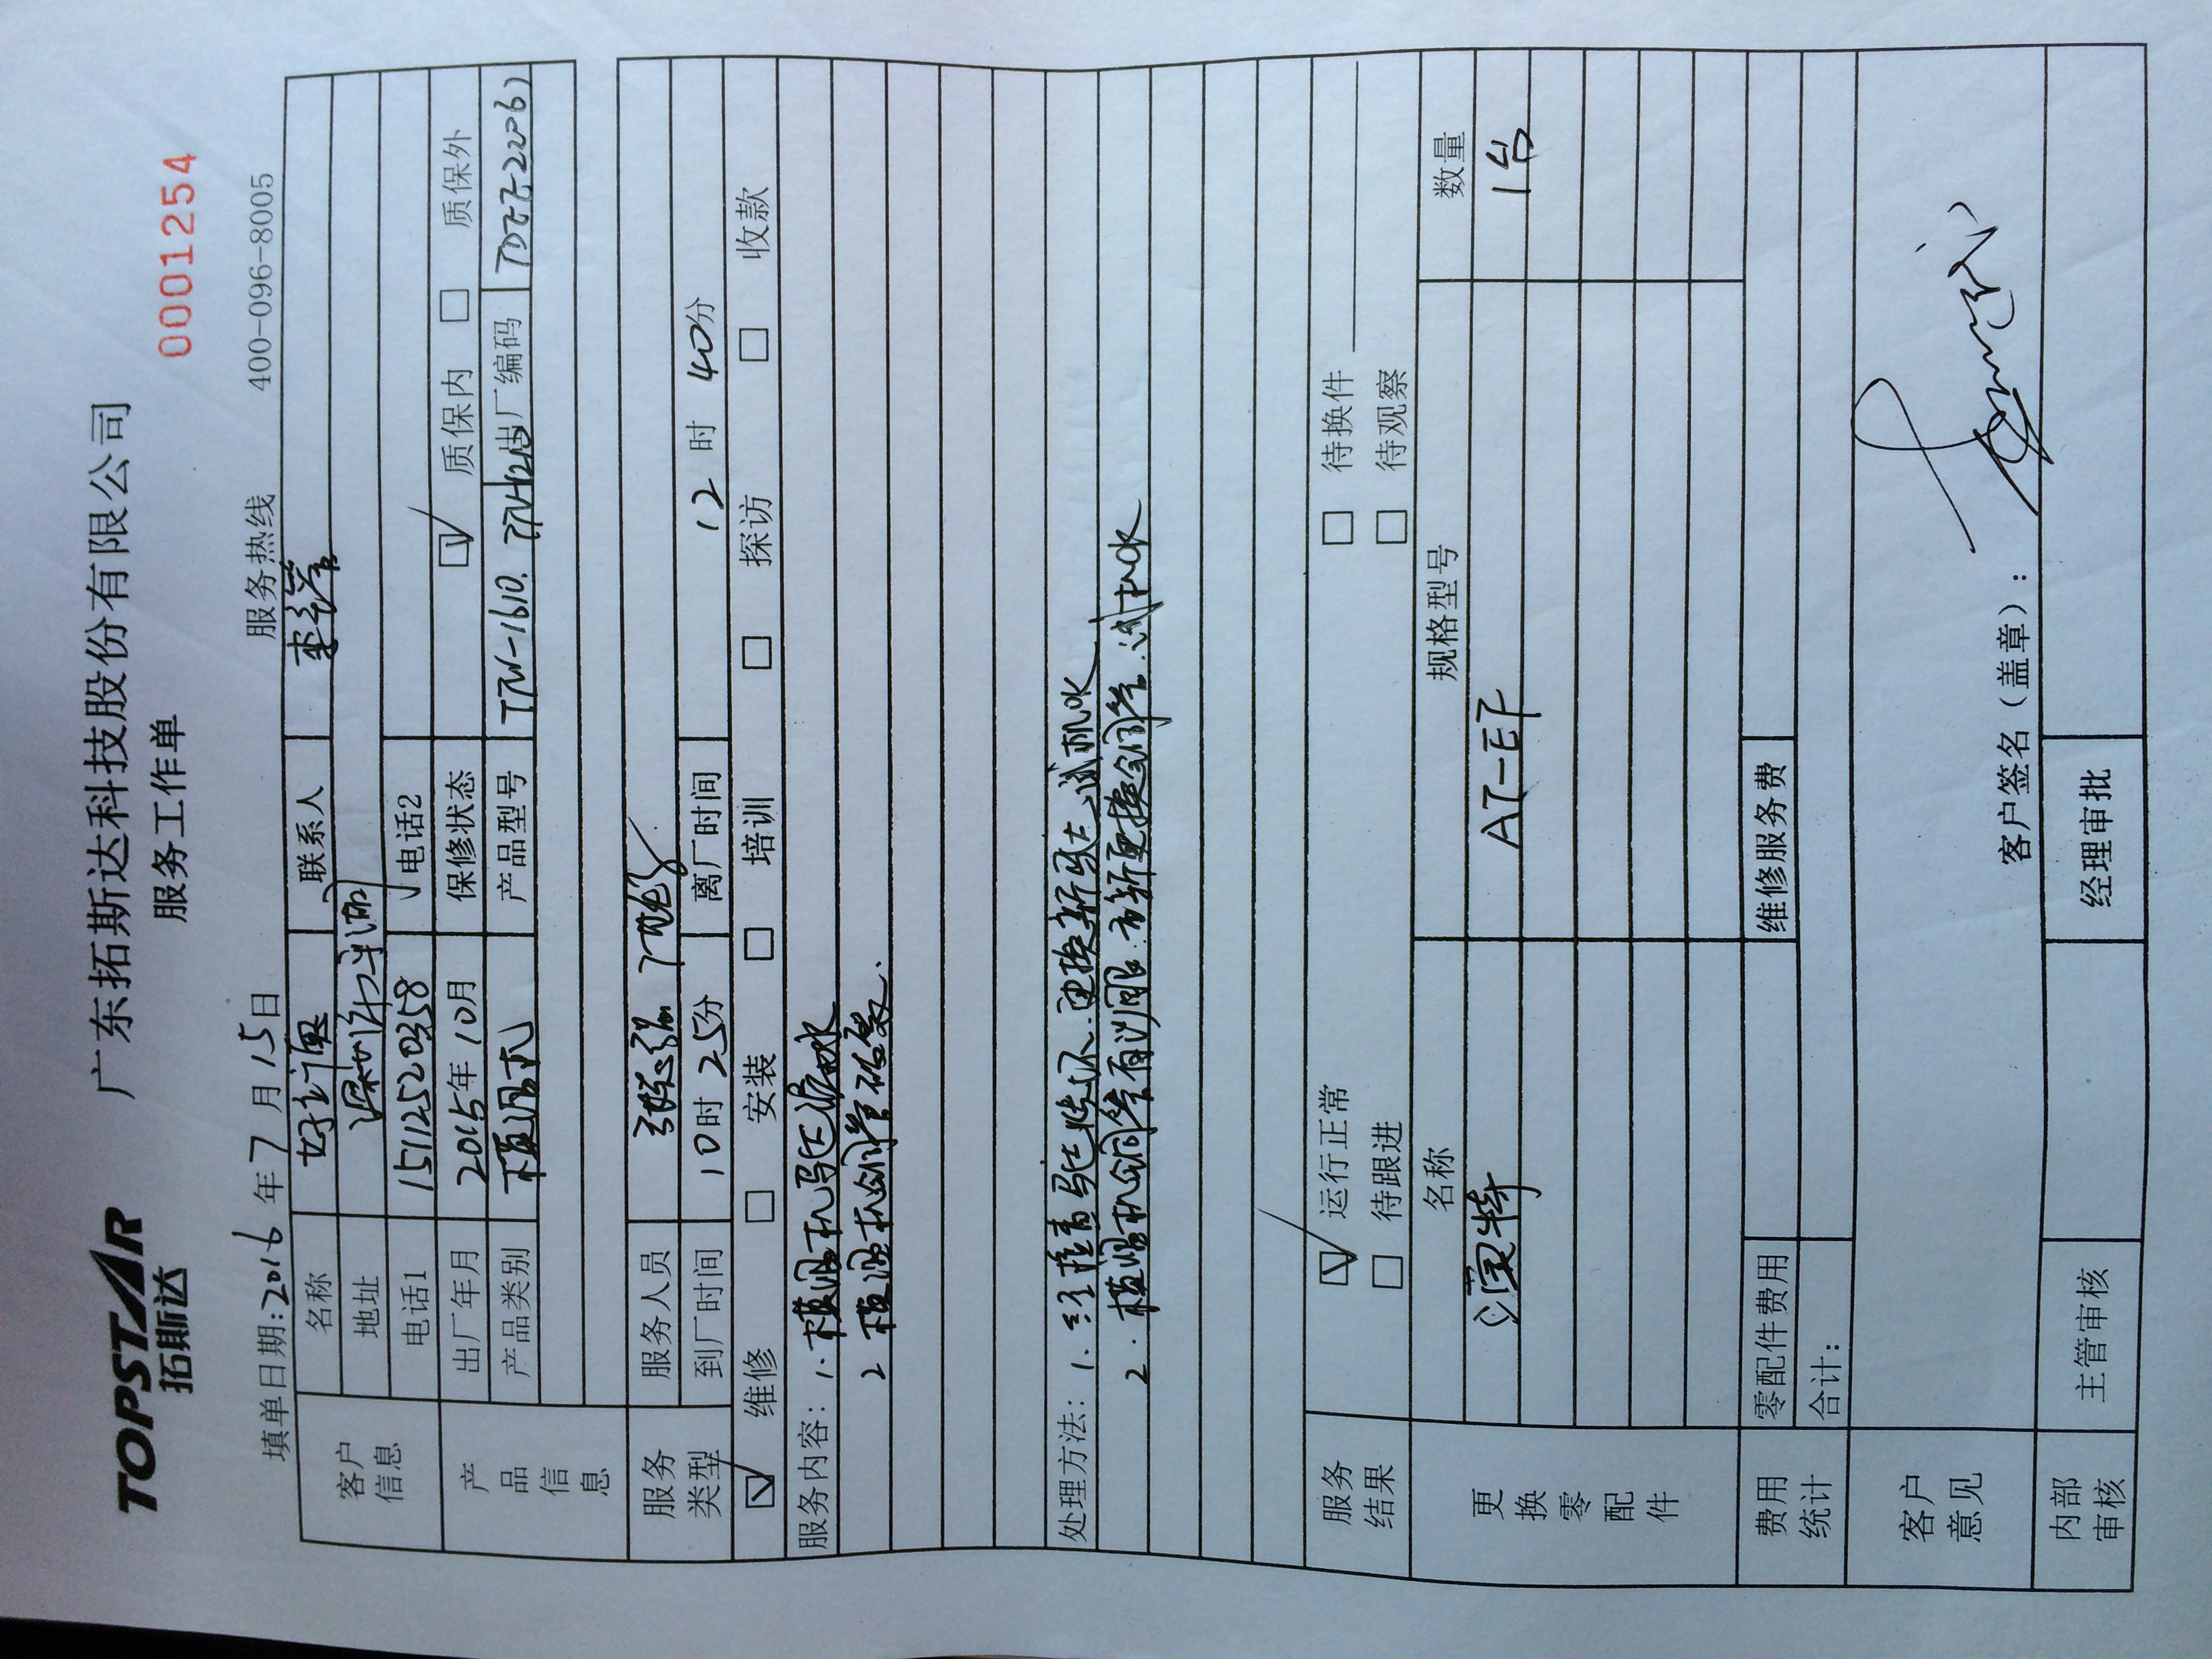 TOPSTAR
拓斯达
广东拓斯达科技股份有限公司
服务工作单
0001254
填单日期:2016年7月15日 服务热线 400-096-8005
客户信息
名称 好 联系人 李
地址
电话1 15112520358 电话2
产品信息
出厂年月 2015年10月 保修状态 质保内 质保外
产品类别 模温机 产品型号 TTW-1610. 出厂编码
服务类型
服务人员 张
到厂时间 10时25分 离厂时间 12时40分
维修 安装 培训 探访 收款
服务内容: 1.模温机马达漏水
2 模温机铜管破裂.
处理方法: 1.经检查马达烧坏.更换新马达试机OK
2.模温机铜管有沙眼.重新更换铜管.试机OK
服务结果
运行正常 待换件
待跟进 待观察
更换零配件
名称 规格型号 数量
特 AT-EF 1台
费用统计
零配件费用 维修服务费
合计:
客户意见
客户签名(盖章):
内部审核
主管审核 经理审批